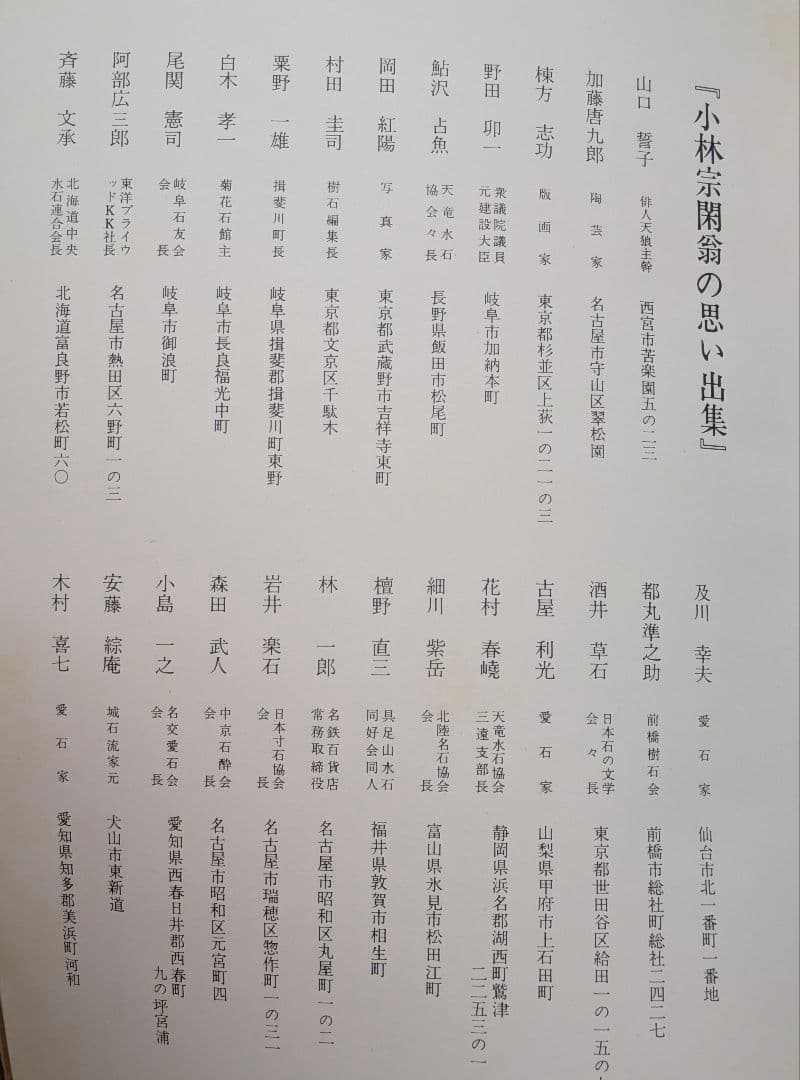 『小林宗閑翁の思い出集』
山口 誓子 俳人天狼主幹 西宮市苦楽園五の二三
加藤唐九郎 陶芸家 名古屋市守山区翠松園
棟方 志功 版画家 東京都杉並区上荻一の二一の三
野田 卯一 衆議院議員元建設大臣 岐阜市加納本町
鮎沢 占魚 天竜水石協会々長 長野県飯田市松尾町
岡田 紅陽 写真家 東京都武蔵野市吉祥寺東町
村田 圭司 樹石編集長 東京都文京区千駄木
粟野 一雄 揖斐川町長 岐阜県揖斐郡揖斐川町東野
白木 孝一 菊花石館主 岐阜市長良福光中町
尾関 憲司 岐阜石友会会長 岐阜市御浪町
阿部広三郎 東洋プライウッドKK社長 名古屋市熱田区六野町一の三
斉藤 文承 北海道中央水石連合会長 北海道富良野市若松町六〇
及川 幸夫 愛石家 仙台市北一番町一番地
都丸準之助 前橋樹石会 前橋市総社町総社二四二七
酒井 草石 日本石の文学会々長 東京都世田谷区給田一の一五の
古屋 利光 愛石家 山梨県甲府市上石田町
花村 春嶢 天竜水石協会三遠支部長 静岡県浜名郡湖西町鷲津二二五三の一
細川 紫岳 北陸名石協会会長 富山県氷見市松田江町
檀野 直三 具足山水石同好会同人 福井県敦賀市相生町
林 一郎 名鉄百貨店常務取締役 名古屋市昭和区丸屋町一の二
岩井 楽石 日本寸石協会会長 名古屋市瑞穂区惣作町一の三一
森田 武人 中京石酔会会長 名古屋市昭和区元宮町四
小島 一之 名交愛石会会長 愛知県西春日井郡西春町九の坪宮浦
安藤 綜庵 城石流家元 犬山市東新道
木村 喜七 愛石家 愛知県知多郡美浜町河和